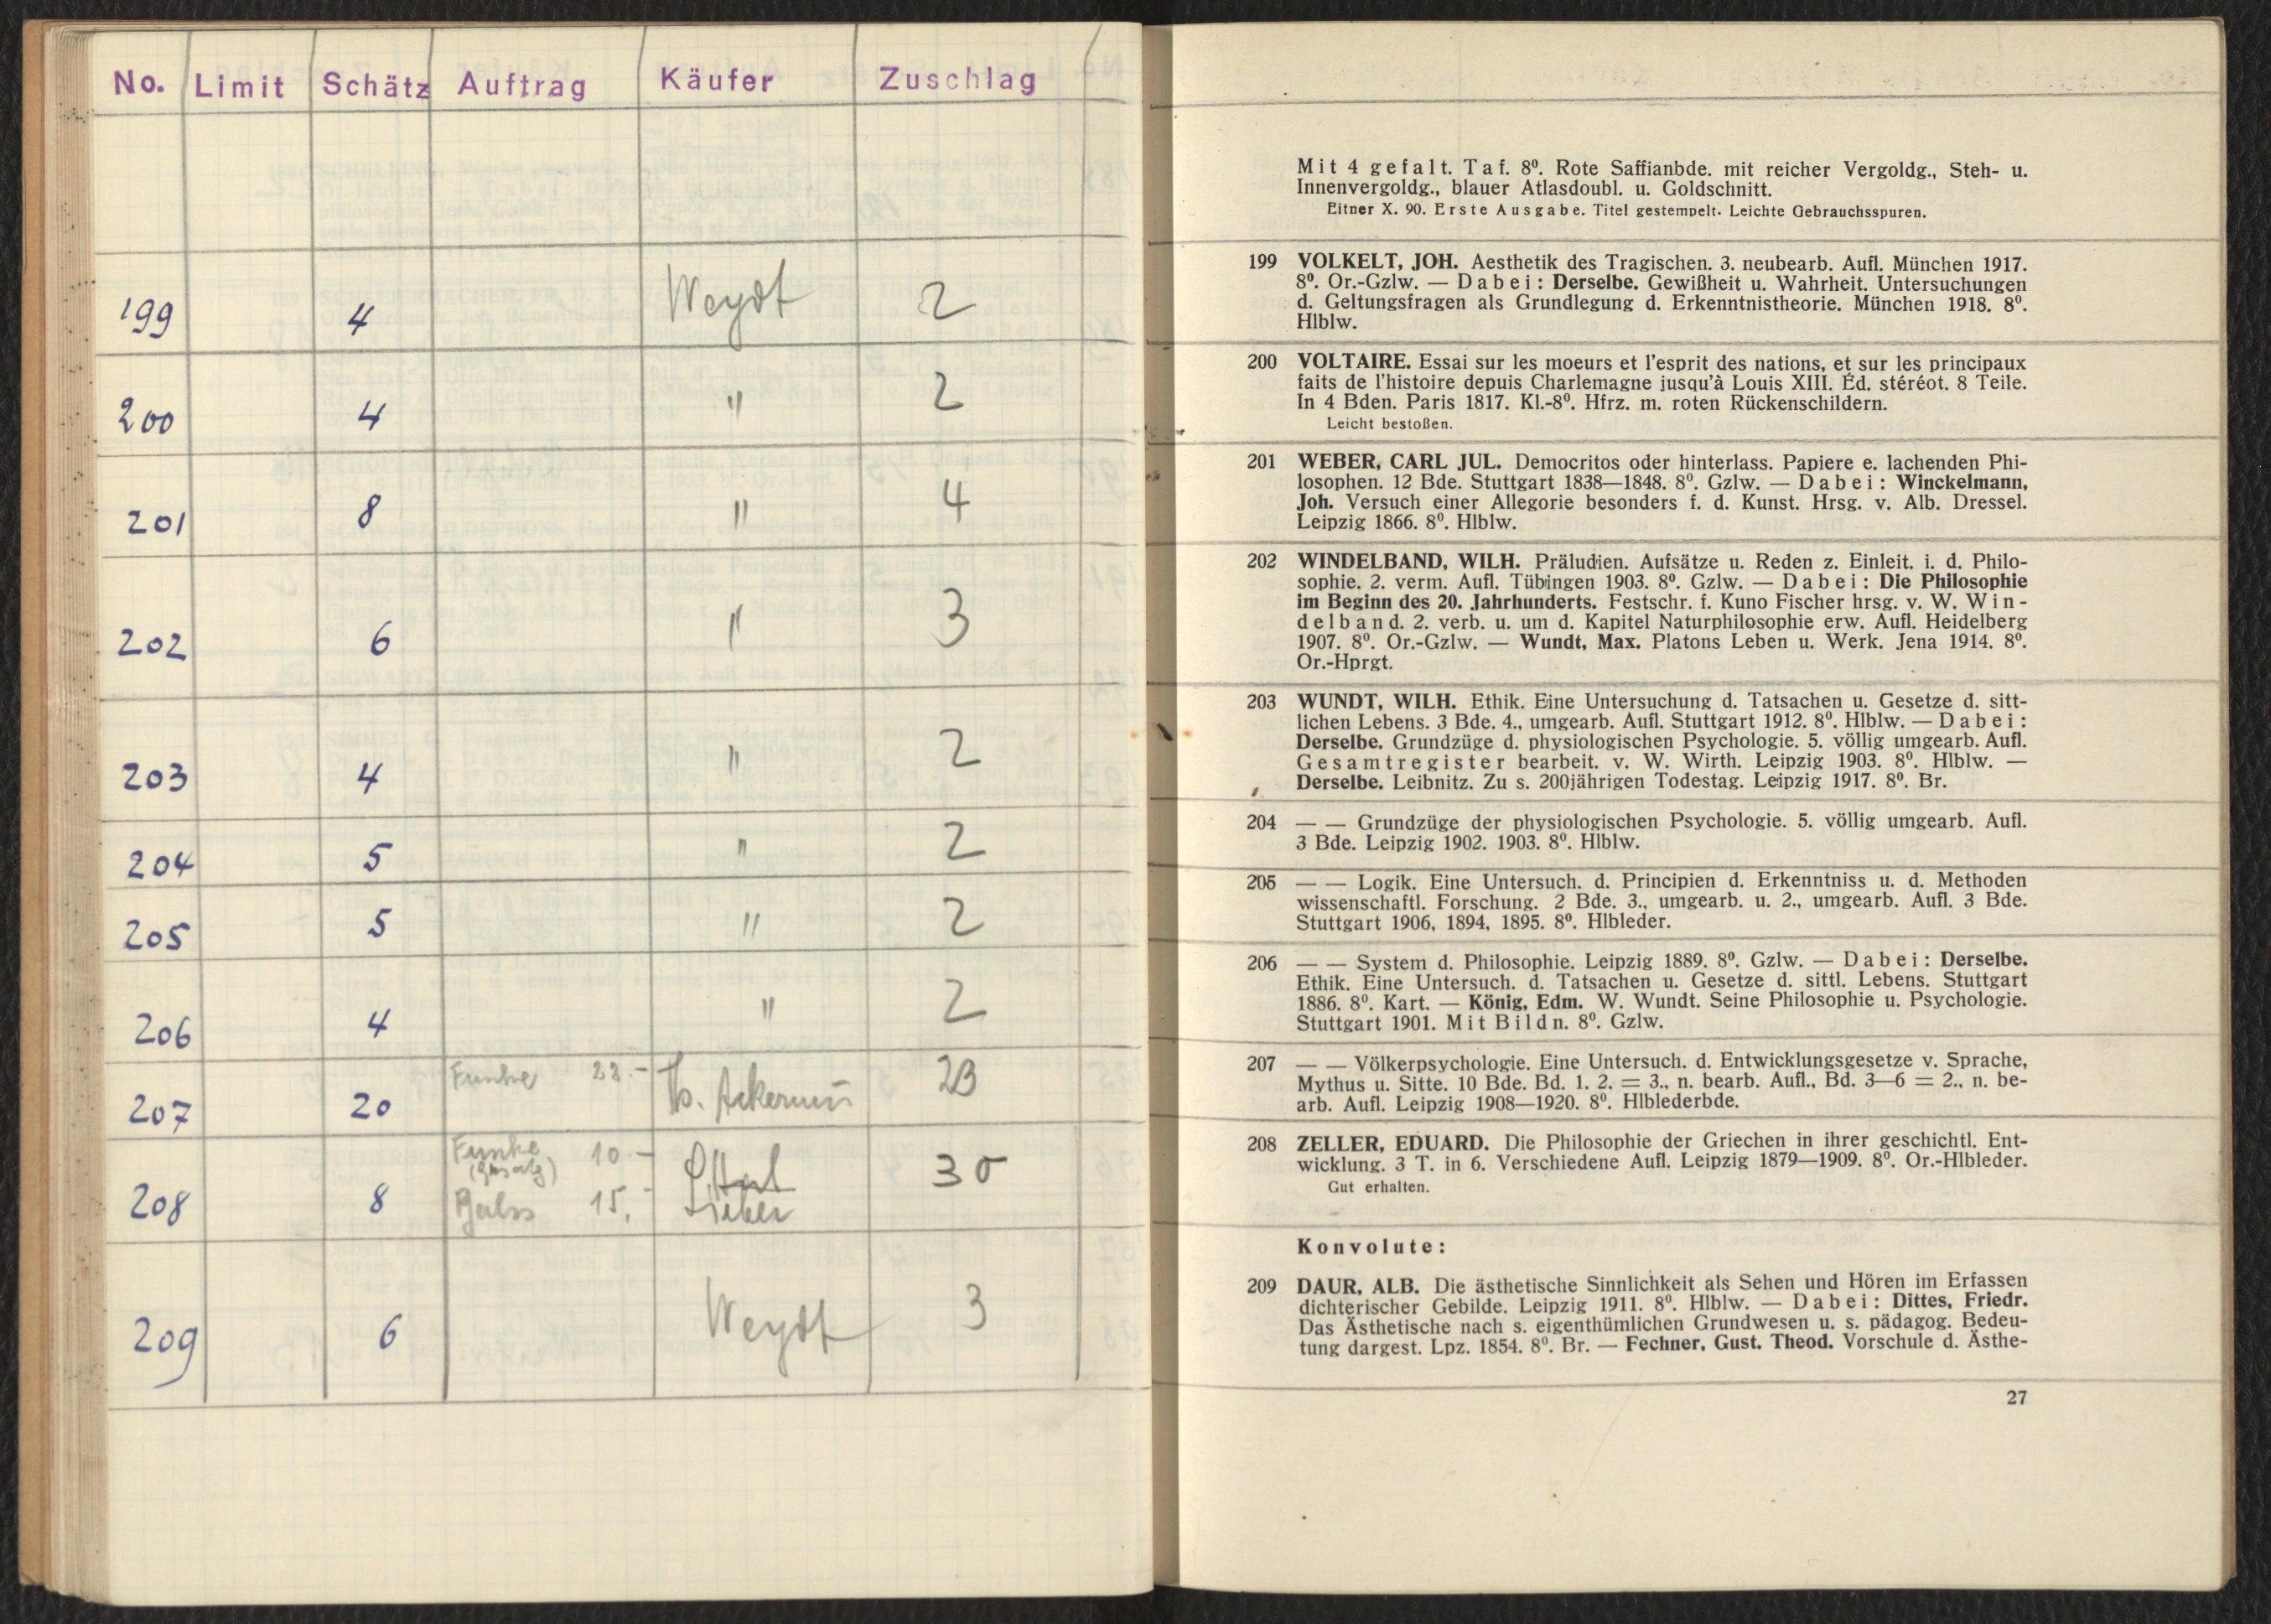 No. Limit Schätz Auftrag Käufer Zuschlag
199 4 Weydt 2
200 4 " 2
201 8 " 4
202 6 " 3
203 4 " 2
204 5 " 2
205 5 " 2
206 4 " 2
207 20 Funke 22.- Ackermann 23
Funke 10.-
208 8 15.- Lieber 30
209 6 Weydt 3
Mit 4 gefalt. Taf. 8⁰. Rote Saffianbde. mit reicher Vergoldg., Steh- u.
Innenvergoldg., blauer Atlasdoubl. u. Goldschnitt.
Eitner X. 90. Erste Ausgabe. Titel gestempelt. Leichte Gebrauchsspuren.
199 VOLKELT, JOH. Aesthetik des Tragischen. 3. neubearb. Aufl. München 1917.
8⁰. Or.-Gzlw. — Dabei: Derselbe. Gewißheit u. Wahrheit. Untersuchungen
d. Geltungsfragen als Grundlegung d. Erkenntnistheorie. München 1918. 8⁰.
Hlblw.
200 VOLTAIRE. Essai sur les moeurs et l'esprit des nations, et sur les principaux
faits de l'histoire depuis Charlemagne jusqu'à Louis XIII. Éd. stéréot. 8 Teile.
In 4 Bden. Paris 1817. Kl.-8⁰. Hfrz. m. roten Rückenschildern.
Leicht bestoßen.
201 WEBER, CARL JUL. Democritos oder hinterlass. Papiere e. lachenden Phi-
losophen. 12 Bde. Stuttgart 1838—1848. 8⁰. Gzlw. — Dabei: Winckelmann,
Joh. Versuch einer Allegorie besonders f. d. Kunst. Hrsg. v. Alb. Dressel.
Leipzig 1866. 8⁰. Hlblw.
202 WINDELBAND, WILH. Präludien. Aufsätze u. Reden z. Einleit. i. d. Philo-
sophie. 2. verm. Aufl. Tübingen 1903. 8⁰. Gzlw. — Dabei: Die Philosophie
im Beginn des 20. Jahrhunderts. Festschr. f. Kuno Fischer hrsg. v. W. Win-
delband. 2. verb. u. um d. Kapitel Naturphilosophie erw. Aufl. Heidelberg
1907. 8⁰. Or.-Gzlw. — Wundt, Max. Platons Leben u. Werk. Jena 1914. 8⁰.
Or.-Hprgt.
203 WUNDT, WILH. Ethik. Eine Untersuchung d. Tatsachen u. Gesetze d. sitt-
lichen Lebens. 3 Bde. 4., umgearb. Aufl. Stuttgart 1912. 8⁰. Hlblw. — Dabei:
Derselbe. Grundzüge d. physiologischen Psychologie. 5. völlig umgearb. Aufl.
Gesamtregister bearbeit. v. W. Wirth. Leipzig 1903. 8⁰. Hlblw. —
Derselbe. Leibnitz. Zu s. 200jährigen Todestag. Leipzig 1917. 8⁰. Br.
204 — — Grundzüge der physiologischen Psychologie. 5. völlig umgearb. Aufl.
3 Bde. Leipzig 1902. 1903. 8⁰. Hlblw.
205 — — Logik. Eine Untersuch. d. Principien d. Erkenntniss u. d. Methoden
wissenschaftl. Forschung. 2 Bde. 3., umgearb. u. 2., umgearb. Aufl. 3 Bde.
Stuttgart 1906, 1894, 1895. 8⁰. Hlbleder.
206 — — System d. Philosophie. Leipzig 1889. 8⁰. Gzlw. — Dabei: Derselbe.
Ethik. Eine Untersuch. d. Tatsachen u. Gesetze d. sittl. Lebens. Stuttgart
1886. 8⁰. Kart. — König, Edm. W. Wundt. Seine Philosophie u. Psychologie.
Stuttgart 1901. Mit Bildn. 8⁰. Gzlw.
207 — — Völkerpsychologie. Eine Untersuch. d. Entwicklungsgesetze v. Sprache,
Mythus u. Sitte. 10 Bde. Bd. 1. 2. = 3., n. bearb. Aufl., Bd. 3—6 = 2., n. be-
arb. Aufl. Leipzig 1908—1920. 8⁰. Hlblederbde.
208 ZELLER, EDUARD. Die Philosophie der Griechen in ihrer geschichtl. Ent-
wicklung. 3 T. in 6. Verschiedene Aufl. Leipzig 1879—1909. 8⁰. Or.-Hlbleder.
Gut erhalten.
Konvolute:
209 DAUR, ALB. Die ästhetische Sinnlichkeit als Sehen und Hören im Erfassen
dichterischer Gebilde. Leipzig 1911. 8⁰. Hlblw. — Dabei: Dittes, Friedr.
Das Ästhetische nach s. eigenthümlichen Grundwesen u. s. pädagog. Bedeu-
tung dargest. Lpz. 1854. 8⁰. Br. — Fechner, Gust. Theod. Vorschule d. Ästhe-
27